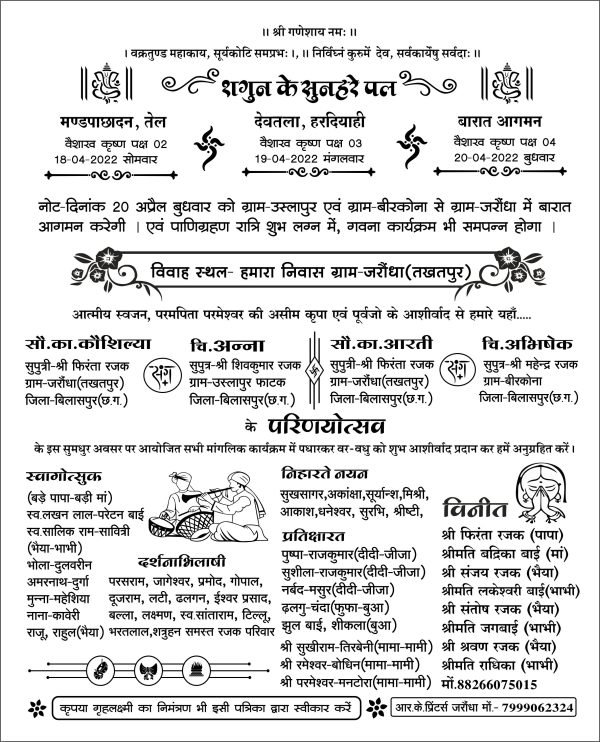 ।। श्री गणेशाय नमः ।।
। वक्रतुण्ड महाकाय, सूर्यकोटि समप्रभः ।, ।। निर्विघ्नं कुरुमें देव, सर्वकार्येषु सर्वदाः ।।
शगुन के सुनहरे पल
मण्डपाछादन, तेल
वैशाख कृष्ण पक्ष 02
18-04-2022 सोमवार
देवतला, हरदियाही
वैशाख कृष्ण पक्ष 03
19-04-2022 मंगलवार
बारात आगमन
वैशाख कृष्ण पक्ष 04
20-04-2022 बुधवार
नोट-दिनांक 20 अप्रैल बुधवार को ग्राम-उस्लापुर एवं ग्राम-बीरकोना से ग्राम-जरौंधा में बारात
आगमन करेगी । एवं पाणिग्रहण रात्रि शुभ लग्न में, गवना कार्यक्रम भी सम्पन्न होगा ।
विवाह स्थल- हमारा निवास ग्राम-जरौंधा(तखतपुर)
आत्मीय स्वजन, परमपिता परमेश्वर की असीम कृपा एवं पूर्वजो के आशीर्वाद से हमारे यहाँ.....
सौ.का.कौशिल्या
सुपुत्री-श्री फिरंता रजक
ग्राम-जरौंधा(तखतपुर)
जिला-बिलासपुर(छ.ग.)
संग
चि.अन्ना
सुपुत्र-श्री शिवकुमार रजक
ग्राम-उस्लापुर फाटक
जिला-बिलासपुर(छ.ग.)
सौ.का.आरती
सुपुत्री-श्री फिरंता रजक
ग्राम-जरौंधा(तखतपुर)
जिला-बिलासपुर(छ.ग.)
संग
चि.अभिषेक
सुपुत्र-श्री महेन्द्र रजक
ग्राम-बीरकोना
जिला-बिलासपुर(छ.ग.)
के परिणयोत्सव
के इस सुमधुर अवसर पर आयोजित सभी मांगलिक कार्यक्रम में पधारकर वर-वधु को शुभ आशीर्वाद प्रदान कर हमें अनुग्रहित करें।
स्वागोत्सुक
(बड़े पापा-बड़ी मां)
स्व.लखन लाल-परेटन बाई
स्व.सालिक राम-सावित्री
(भैया-भाभी)
भोला-दुलवरीन
अमरनाथ-दुर्गा
मुन्ना-महेशिया
नाना-कावेरी
राजू, राहुल(भैया)
दर्शनाभिलाषी
परसराम, जागेश्वर, प्रमोद, गोपाल,
दूजराम, लटी, ढलगन, ईश्वर प्रसाद,
बल्ला, लक्ष्मण, स्व.सांताराम, टिल्लू,
भरतलाल,शत्रुहन समस्त रजक परिवार
निहारते नयन
सुखसागर,अकांक्षा,सूर्यान्श,मिश्री,
आकाश,धनेश्वर, सुरभि, श्रीष्टी,
प्रतिक्षारत
पुष्पा-राजकुमार(दीदी-जीजा)
सुशीला-राजकुमार(दीदी-जीजा)
नर्बद-मसुर(दीदी-जीजा)
ढ़लगु-चंदा(फुफा-बुआ)
झुल बाई, शीकला(बुआ)
श्री सुखीराम-तिरबेनी(मामा-मामी)
श्री रमेश्वर-बोधिन(मामा-मामी)
श्री परमेश्वर-मनटोरा(मामा-मामी)
विनीत
श्री फिरंता रजक (पापा)
श्रीमति बद्रिका बाई (मां)
श्री संजय रजक (भैया)
श्रीमति लकेश्वरी बाई(भाभी)
श्री संतोष रजक (भैया)
श्रीमति जगबाई (भाभी)
श्री श्रवण रजक (भैया)
श्रीमति राधिका (भाभी)
मों.88266075015
कृपया गृहलक्ष्मी का निमंत्रण भी इसी पत्रिका द्वारा स्वीकार करें
आर.के.प्रिंटर्स जरौंधा मों.- 7999062324